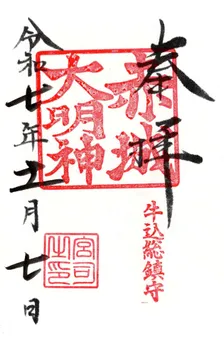 奉拝
赤城
大明神
牛込総鎮守
令和七年五月七日
宮司
之印